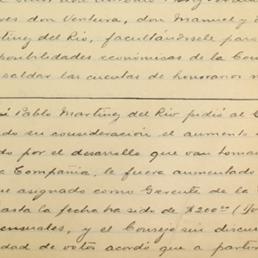 res don Ventura, don Manuel y
tinez del Rio, facultándosele para
posibilidades económicas de la Com
saldar las cuentas de honorarios
sé Pablo Martinez del Rio pidió al C
do su consideración el aumento
do por el desarrollo que van toman
Compañía, le fuera aumentado
asignado como Gerente de la
asta la fecha ha sido de $200.00
ensuales, y el Consejo sin discu
dad de votos acordó que a partir